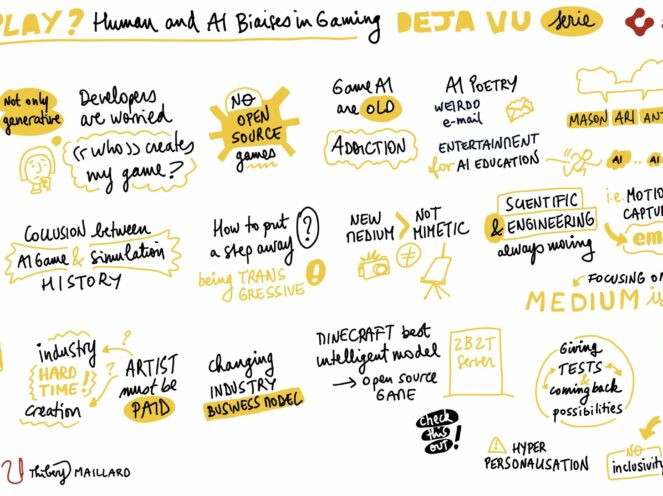 PLAY? Human and AI Biaises in Gaming DEJA VU serie
Not only
generative
Developers
are worried
« who » creates
my game?
NO
OPEN
SOURCE
games
Game AI
are OLD
ADDICTION
AI POETRY
WEIRDO
e-mail
ENTERTAINMENT
for AI EDUCATION
MASON ARI ANT
AI .. AI
COLLUSION between
AI Game & simulation
HISTORY
How to put
a step away
being TRANS
GRESSIVE
?
!
NEW
MEDIUM
>
NOT
MIMETIC
≠
SCIENTIFIC
& ENGINEERING
always moving
i.e. MOTION
CAPTU
em
FOCUSING ON
MEDIUM is
industry
HARD
TIME!
creation
?
?
ARTIST
must be
PAID
changing
INDUSTRY
BUSINESS MODEL
DINECRAFT best
intelligent model
→ open source
GAME
2B2T
Server
check
this
out!
Giving
TESTS
&
coming back
possibilities
! HYPER
PERSONALISATION
NO
inclusivity
Thibery MAILLARD